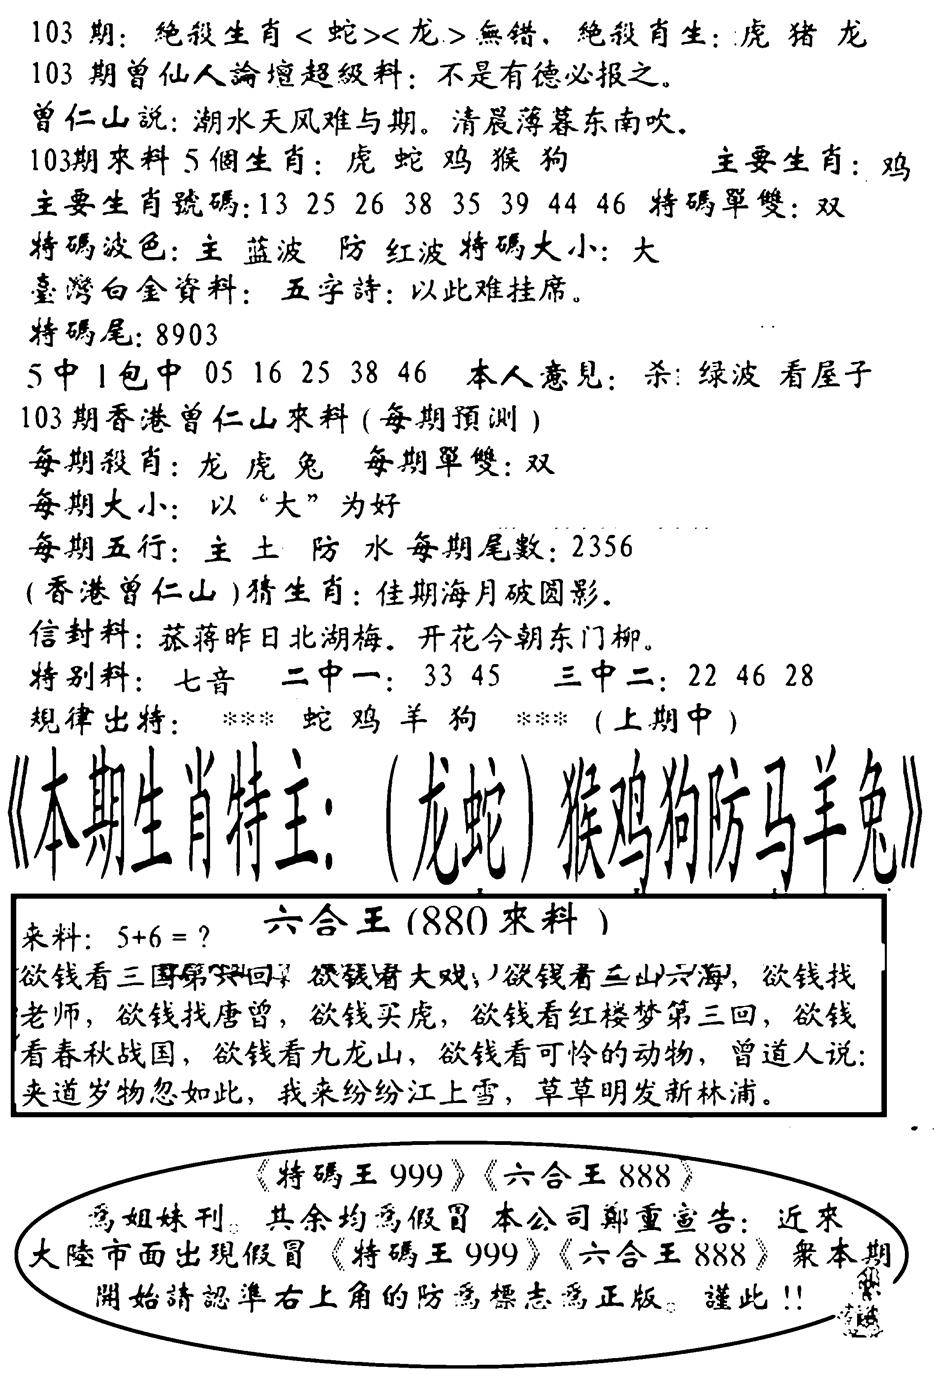 103 期: 絶殺生肖<蛇><龙>無错. 絶殺肖生: 虎 猪 龙
103 期曾仙人論壇超級料: 不是有德必报之。
曾仁山説: 潮水天风难与期。清晨薄暮东南吹.
103期來料 5 個生肖: 虎 蛇 鸡 猴 狗 主要生肖: 鸡
主要生肖號碼:13 25 26 38 35 39 44 46 特碼單雙: 双
特碼波色: 主 蓝波 防 红波 特碼大小: 大
臺灣白金資料: 五字詩: 以此难挂席。
特碼尾: 8903
5 中 1 包中 05 16 25 38 46 本人意見: 杀: 绿波 看屋子
103 期香港曾仁山來料 (每期預測)
每期殺肖: 龙 虎 兔 每期單雙: 双
每期大小: 以“大”为好
每期五行: 主 土 防 水 每期尾數: 2356
(香港曾仁山)猜生肖: 佳期海月破圆影.
信封料: 菰蒋昨日北湖梅. 开花今朝东门柳。
特别料: 七音 二中一: 33 45 三中二: 22 46 28
規律出特: *** 蛇 鸡 羊 狗 *** (上期中)
《本期生肖特主: (龙蛇) 猴鸡狗防马羊兔》
六合王(880來料)
来料: 5+6=?
欲钱看三国第六回, 欲钱看大戏, 欲钱看三山六海, 欲钱找
老师, 欲钱找唐曾, 欲钱买虎, 欲钱看红楼梦第三回, 欲钱
看春秋战国, 欲钱看九龙山, 欲钱看可怜的动物, 曾道人说:
夹道岁物忽如此, 我来纷纷江上雪, 草草明发新林浦。
《特碼王 999》《六合王 888》
爲姐妹刊。其余均爲假冒 本公司鄭重宣告: 近來
大陸市面出現假冒《特碼王 999》《六合王 888》衆本期
開始請認準右上角的防爲標志爲正版。謹此!!